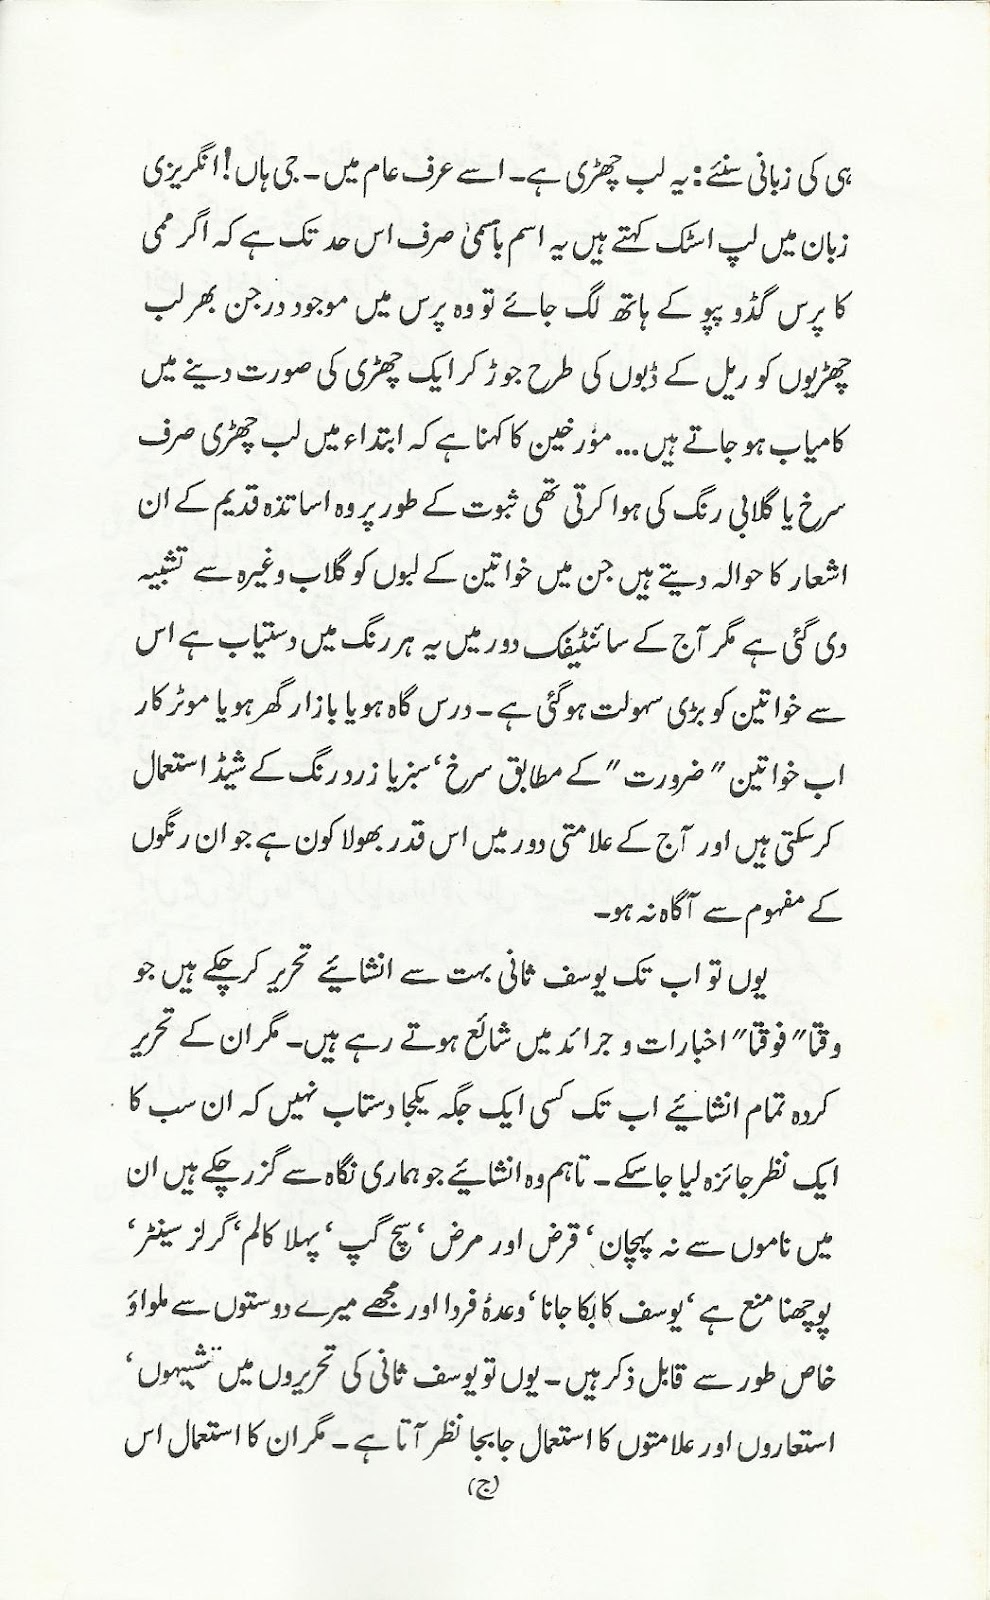 ہی کی زبانی سنئے: یہ لب چھڑی ہے۔ اسے عرف عام میں۔ جی ہاں! انگریزی
زبان میں لپ اسٹک کہتے ہیں یہ اسم بامسمیٰ صرف اس حد تک ہے کہ اگر ممی
کا پرس گڈو پپو کے ہاتھ لگ جائے تو وہ پرس میں موجود درجن بھر لب
چھڑیوں کو ریل کے ڈبوں کی طرح جوڑ کر ایک چھڑی کی صورت دینے میں
کامیاب ہو جاتے ہیں ... مؤرخین کا کہنا ہے کہ ابتداء میں لب چھڑی صرف
سرخ یا گلابی رنگ کی ہوا کرتی تھی ثبوت کے طور پر وہ اساتذہ قدیم کے ان
اشعار کا حوالہ دیتے ہیں جن میں خواتین کے لبوں کو گلاب وغیرہ سے تشبیہ
دی گئی ہے مگر آج کے سائنٹیفک دور میں یہ ہر رنگ میں دستیاب ہے اس
سے خواتین کو بڑی سہولت ہوگئی ہے۔ درس گاہ ہو یا بازار گھر ہو یا موٹر کار
اب خواتین "ضرورت" کے مطابق سرخ‘ سبز یا زرد رنگ کے شیڈ استعمال
کر سکتی ہیں اور آج کے علامتی دور میں اس قدر بھولا کون ہے جو ان رنگوں
کے مفہوم سے آگاہ نہ ہو۔
یوں تو اب تک یوسف ثانی بہت سے انشائیے تحریر کر چکے ہیں جو
وقتا" فوقتا" اخبارات و جرائد میں شائع ہوتے رہے ہیں۔ مگر ان کے تحریر
کردہ تمام انشائیے اب تک کسی ایک جگہ یکجا دستاب نہیں کہ ان سب کا
ایک نظر جائزہ لیا جا سکے۔ تاہم وہ انشائیے جو ہماری نگاہ سے گزر چکے ہیں ان
میں ناموں سے نہ پہچان‘ قرض اور مرض‘ سچ گپ‘ پہلا کالم‘ گرلز سینٹر‘
پوچھنا منع ہے‘ یوسف کا بکا جانا‘ وعدۂ فردا اور مجھے میرے دوستوں سے ملواؤ
خاص طور سے قابل ذکر ہیں۔ یوں تو یوسف ثانی کی تحریروں میں تشبیہوں‘
استعاروں اور علامتوں کا استعمال جابجا نظر آتا ہے۔ مگر ان کا استعمال اس
(ج)